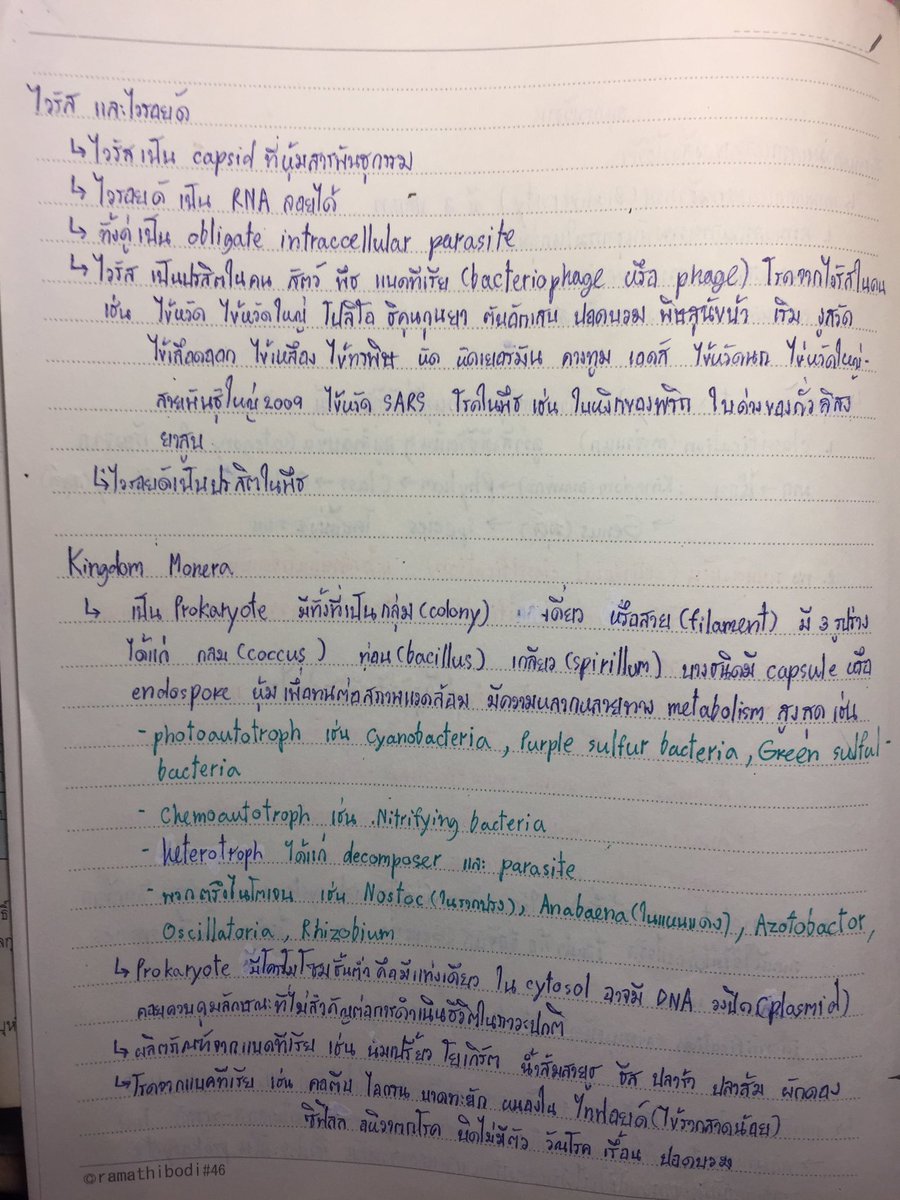 1
ไวรัส และไวรอยด์
↳ ไวรัสเป็น capsid ที่หุ้มสารพันธุกรรม
↳ ไวรอยด์ เป็น RNA ลอยได้
↳ ทั้งคู่เป็น obligate intraccellular parasite
↳ ไวรัส เป็นปรสิตในคน สัตว์ พืช แบคทีเรีย (bacteriophage หรือ phage) โรคจากไวรัสในคน
เช่น ไข้หวัด ไข้หวัดใหญ่ โปลิโอ ชิคุนกุนยา ตับอักเสบ ปอดบวม พิษสุนัขบ้า เริม งูสวัด
ไข้เลือดออก ไข้เหลือง ไข้ทรพิษ หัด หัดเยอรมัน คางทูม เอดส์ ไข้หวัดนก ไข้หวัดใหญ่-
สายพันธุ์ใหญ่ 2009 ไข้หวัด SARS โรคในพืช เช่น ใบหงิกของพริก ใบด่างของถั่วลิสง
ยาสูบ
↳ ไวรอยด์เป็นปรสิตในพืช
Kingdom Monera
↳ เป็น Prokaryote มีทั้งที่เป็นกลุ่ม (colony) เดี่ยว หรือสาย (filament) มี 3 รูปร่าง
ได้แก่ กลม (coccus) ท่อน (bacillus) เกลียว (spirillum) บางชนิดมี capsule หรือ
endospore หุ้มเพื่อทนต่อสภาพแวดล้อม มีความหลากหลายทาง metabolism สูงสุด เช่น
- photoautotroph เช่น Cyanobacteria , Purple sulfur bacteria , Green sulful-
bacteria
- Chemoautotroph เช่น Nitrifying bacteria
- heterotroph ได้แก่ decomposer และ parasite
- พวกตรึงไนโตเจน เช่น Nostoc (ในรากปรง) , Anabaena (ในแหนแดง) , Azotobactor,
Oscillatoria , Rhizobium
↳ Prokaryote มีโครโมโซมชั้นต่ำ คือมีแท่งเดียว ใน cytosol อาจมี DNA วงปิด (plasmid)
คอยควบคุมลักษณะที่ไม่สำคัญต่อการดำเนินชีวิตในภาวะปกติ
↳ ผลิตภัณฑ์จากแบคทีเรีย เช่น นมเปรี้ยว โยเกิร์ต น้ำส้มสายชู ชีส ปลาร้า ปลาส้ม ผักดอง
↳ โรคจากแบคทีเรีย เช่น คอตีบ ไอกรน บาดทะยัก หนองใน ไทฟอยด์ (ไข้รากสาดน้อย)
ซิฟิลิส อหิวาตกโรค บิดไม่มีตัว วัณโรค เรื้อน ปอดบวม
©ramathibodi#46